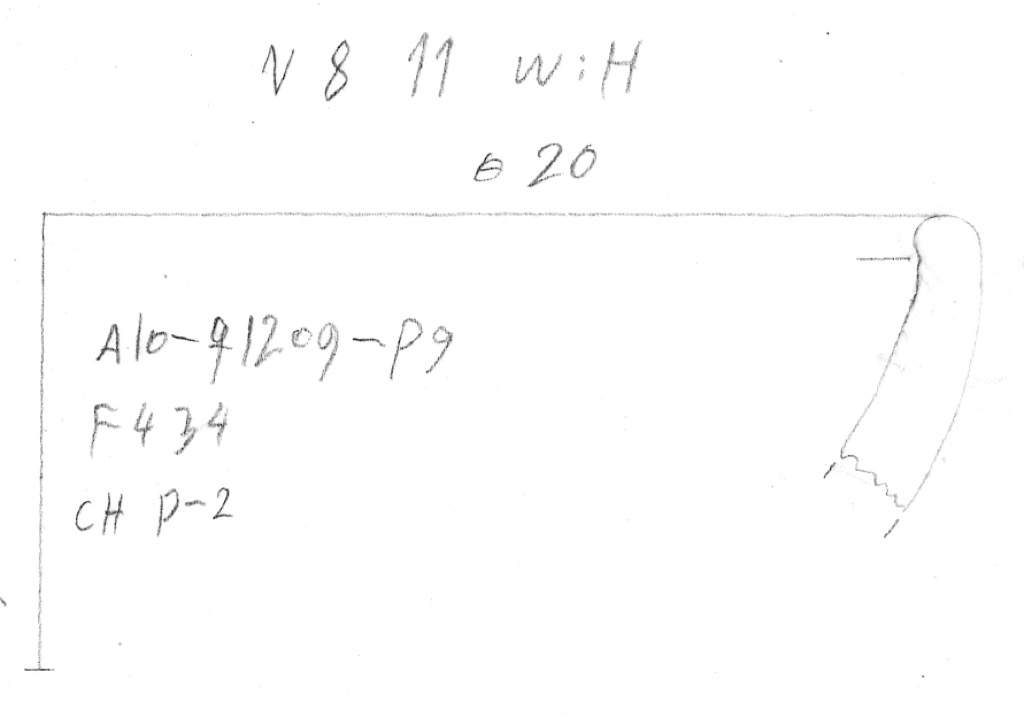 N 8 11 W:H
⌀ 20
A10-91209-P9
F434
CH P-2